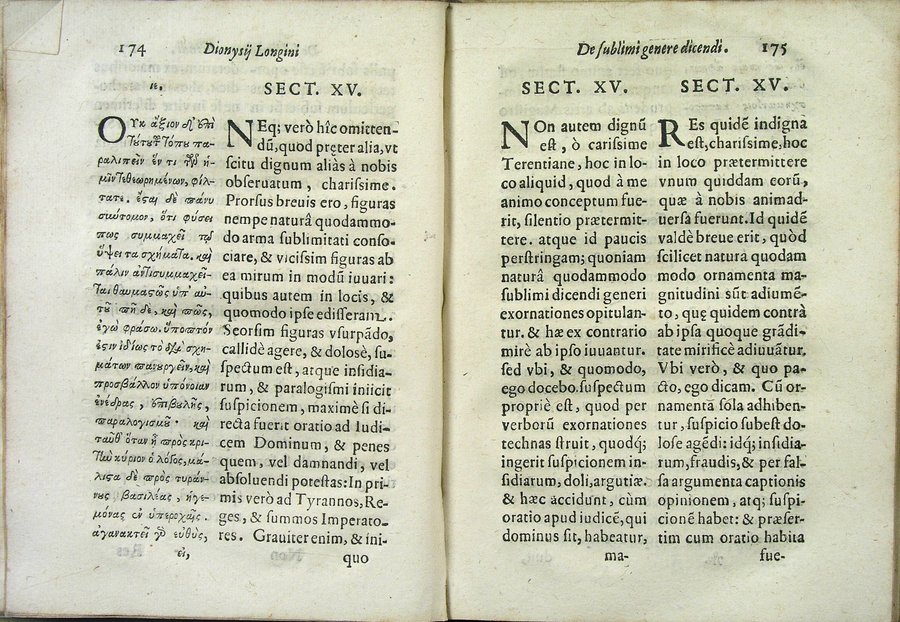 174
Dionysij Longini
ιε.
Οὐκ ἄξιον δ' ἐπὶ
τούτου τόπου πα-
ραλιπεῖν ἕν τι τῶν ἡ-
μῖν τεθεωρημένων, φίλ-
τατε. ἔσται δὲ πάνυ
σύντομον, ὅτι φύσει
πως συμμαχεῖ τῷ
ὕψει τὰ σχήματα. καὶ
πάλιν ἀντισυμμαχεῖ-
ται θαυμαστῶς ὑπ' αὐ-
τοῦ πῆ δὲ, καὶ πῶς,
ἐγὼ φράσω. ὕποπτόν
ἐστιν ἰδίως τὸ διὰ σχη-
μάτων πανουργεῖν, καὶ
προσβάλλον ὑπόνοιαν
ἐνέδρας, ἐπιβουλῆς,
παραλογισμοῦ. καὶ
ταῦθ' ὅταν ᾖ πρὸς κρι-
τὴν κύριον ὁ λόγος, μά-
λιστα δὲ πρὸς τυράν-
νους, βασιλέας, ἡγε-
μόνας ἐν ὑπεροχαῖς.
ἀγανακτεῖ γὰρ εὐθὺς,
εἰ,
SECT. XV.
NEq; verò hîc omitten-
dũ, quod pręter alia, vt
scitu dignum aliàs à nobis
obseruatum, charissime.
Prorsus breuis ero, figuras
nempe naturâ quodammo-
do arma sublimitati conso-
ciare, & vicissim figuras ab
ea mirum in modũ iuuari:
quibus autem in locis, &
quomodo ipse edisseram.
Seorsim figuras vsurpãdo,
callidè agere, & dolosè, su-
spectum est, atque insidia-
rum, & paralogismi iniicit
suspicionem, maximè si di-
recta fuerit oratio ad Iudi-
cem Dominum, & penes
quem, vel damnandi, vel
absoluendi potestas: In pri-
mis verò ad Tyrannos, Re-
ges, & summos Imperato-
res. Grauiter enim, & ini-
quo
De sublimi genere dicendi.
175
SECT. XV.
NOn autem dignũ
est, ò carissime
Terentiane, hoc in lo-
co aliquid, quod à me
animo conceptum fue-
rit, silentio prætermit-
tere. atque id paucis
perstringam; quoniam
naturâ quodammodo
sublimi dicendi generi
exornationes opitulan-
tur. & hæ ex contrario
mirè ab ipso iuuantur.
sed vbi, & quomodo,
ego docebo. suspectum
propriè est, quod per
verborũ exornationes
technas struit, quodq;
ingerit suspicionem in-
sidiarum, doli, argutiæ.
& hæc accidunt, cùm
oratio apud iudicẽ, qui
dominus sit, habeatur,
ma-
SECT. XV.
REs quidẽ indigna
est, charissime, hoc
in loco prætermittere
vnum quiddam eorũ,
quæ à nobis animad-
uersa fuerunt. Id quidẽ
valdè breue erit, quòd
scilicet natura quodam
modo ornamenta ma-
gnitudini sũt adiumẽ-
to, quę quidem contrà
ab ipsa quoque grãdi-
tate mirificè adiuuãtur.
Vbi verò, & quo pa-
cto, ego dicam. Cũ or-
namentá sola adhiben-
tur, suspicio subest do-
lose agẽdi: idq; insidia-
rum, fraudis, & per fal-
sa argumenta captionis
opinionem, atq; suspi-
cionẽ habet: & præser-
tim cum oratio habita
fue-